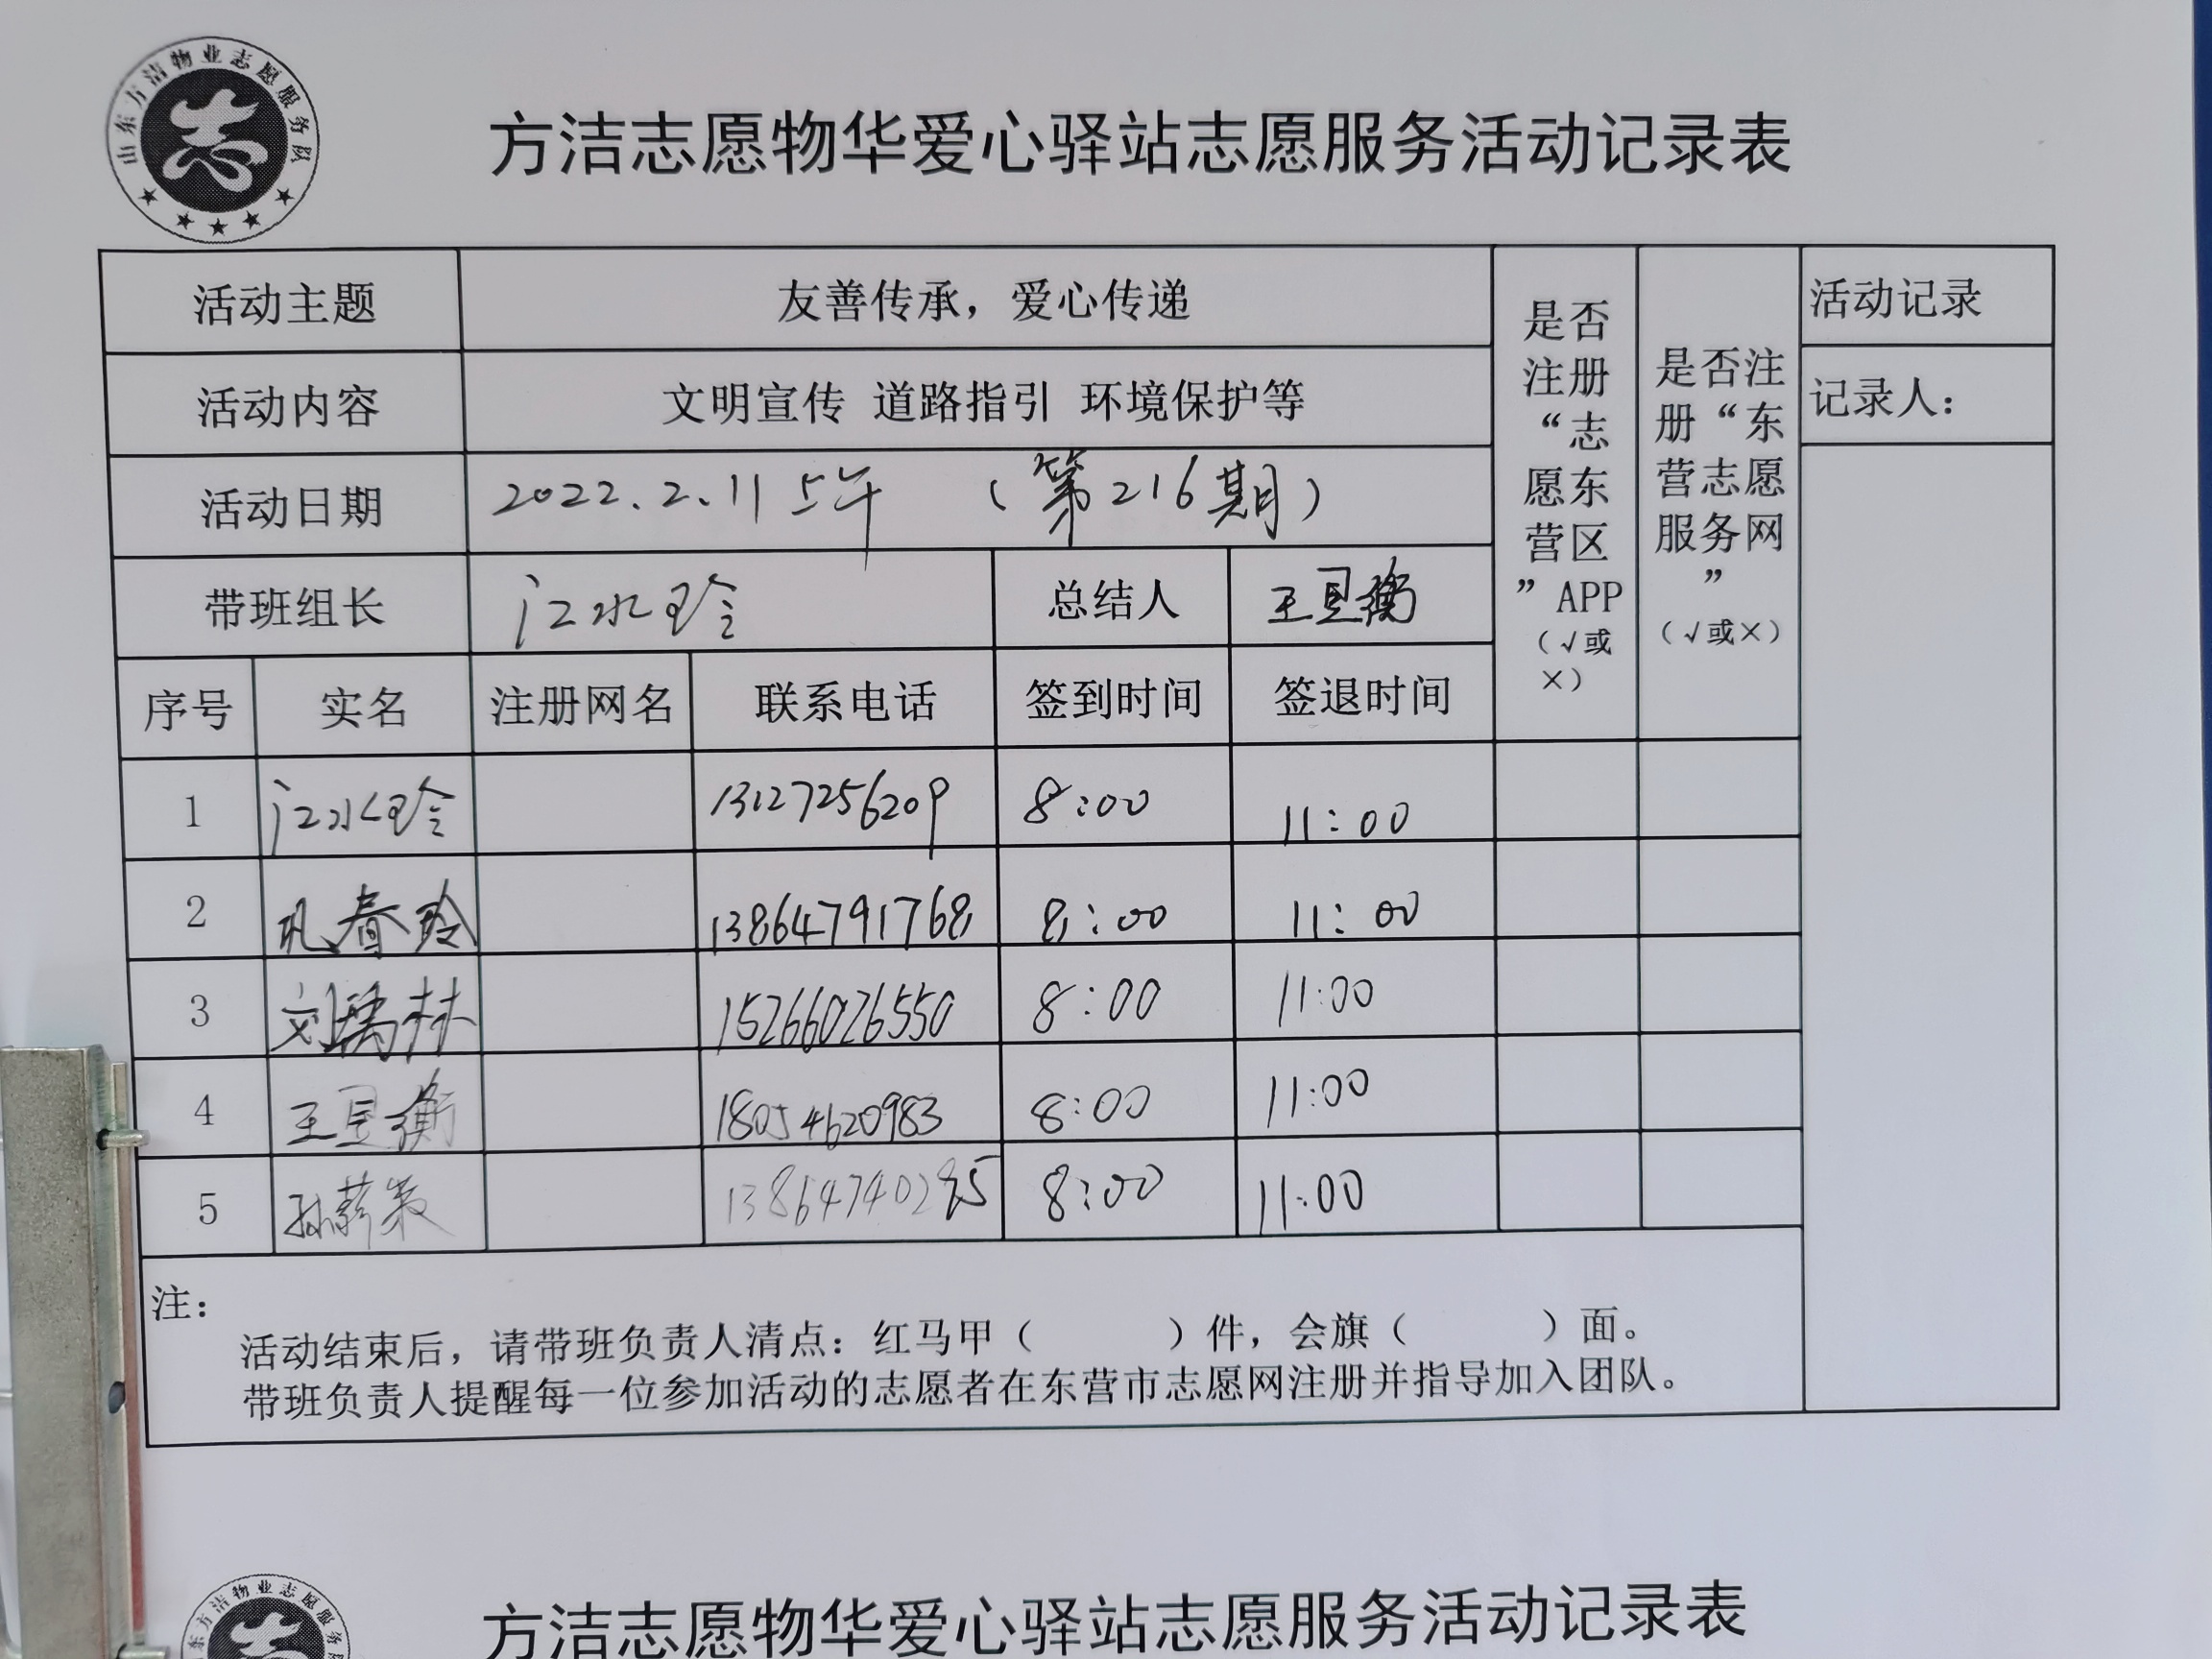 山东方洁物业志愿服务队
方洁志愿物华爱心驿站志愿服务活动记录表
活动主题 友善传承，爱心传递
活动内容 文明宣传 道路指引 环境保护等
活动日期 2022.2.11上午 （第216期）
带班组长 江水玲 总结人 王昱衡
是否注册“志愿东营区”APP（√或×）
是否注册“东营志愿服务网”（√或×）
活动记录
记录人：
序号 实名 注册网名 联系电话 签到时间 签退时间
1 江水玲 13127256209 8:00 11:00
2 巩春玲 13864791768 8:00 11:00
3 刘瑞林 15266026550 8:00 11:00
4 王昱衡 18054620983 8:00 11:00
5 8:00 11:00
注：
活动结束后，请带班负责人清点：红马甲（ ）件，会旗（ ）面。
带班负责人提醒每一位参加活动的志愿者在东营市志愿网注册并指导加入团队。
东方洁物业志愿服务
方洁志愿物华爱心驿站志愿服务活动记录表